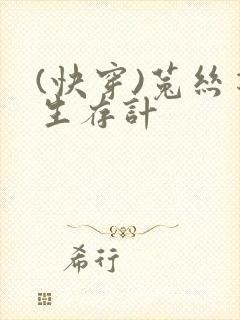 (快穿)菟絲
生存計
希行